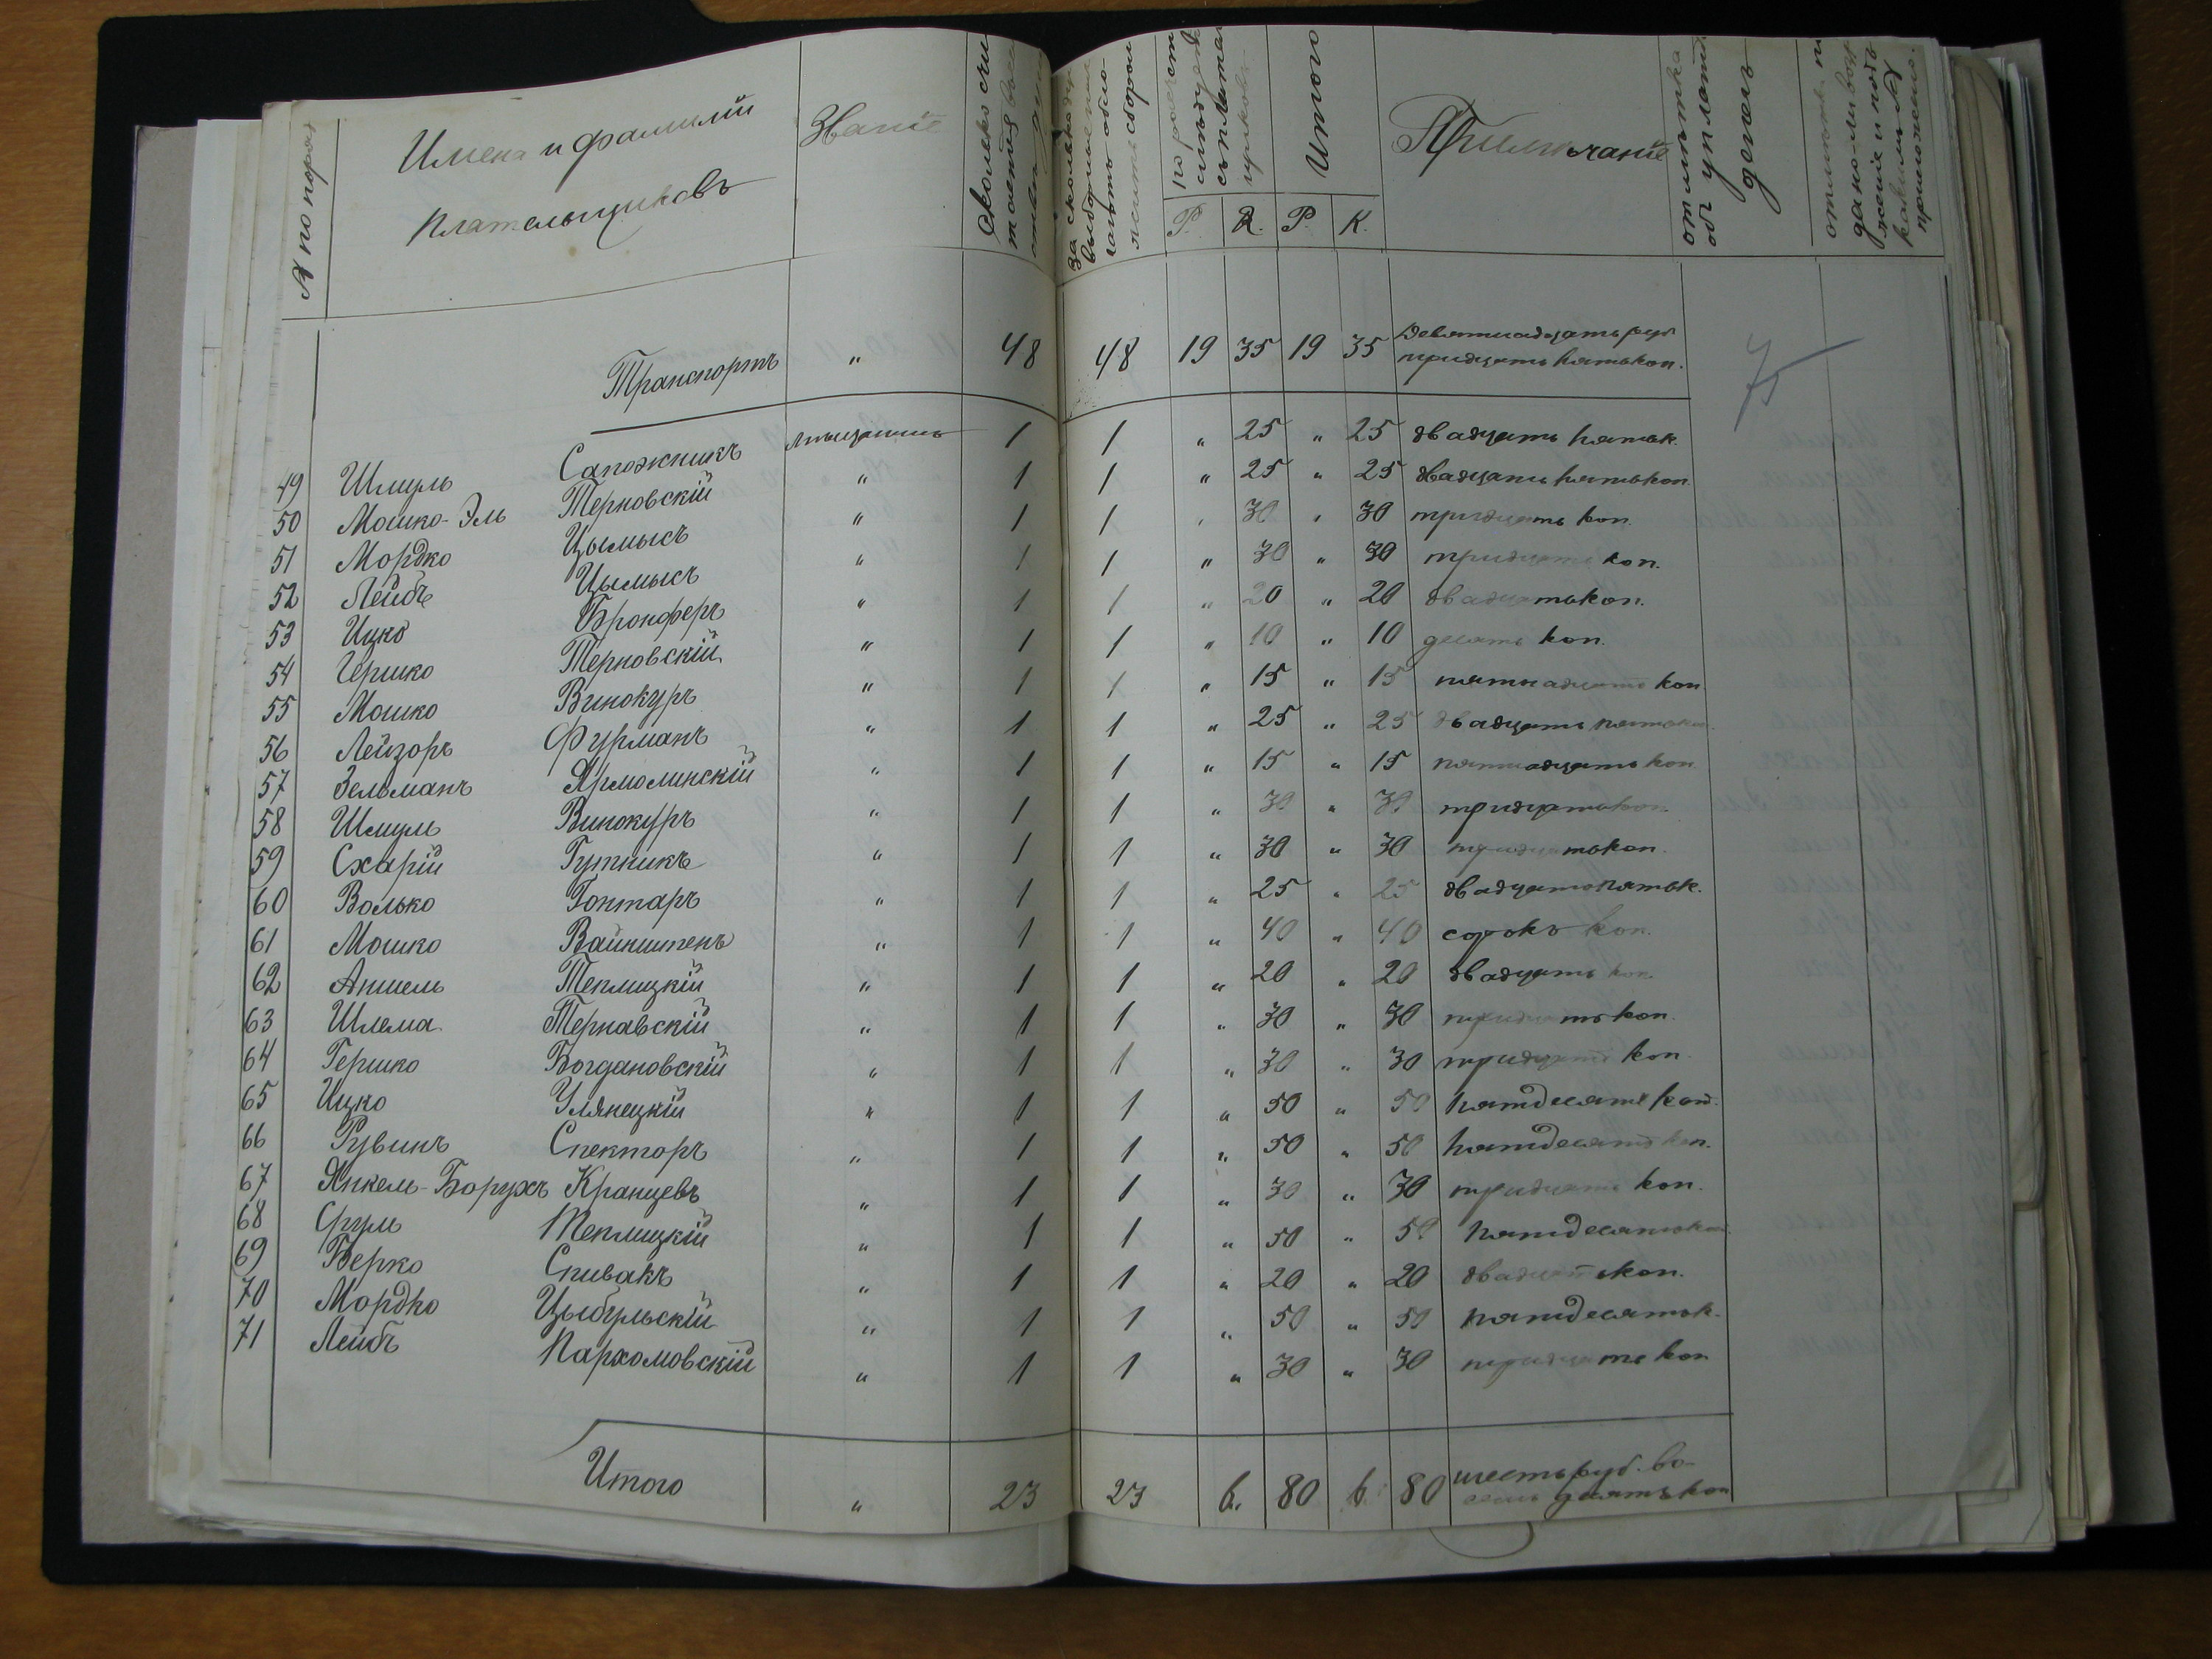 № по поряд
Имена и фамилiи
плательщиковъ
Званiе
Сколько
за сколько
сборомъ
Итого
Примѣчанiе
отмѣтка
объ уплатѣ
денегъ
Р. К. Р. К.
Транспортъ " 48 48 19 35 19 35 Девятнадцать руб
тридцать пять коп.
75
49 Шмуль Сапожникъ мѣщанинъ 1 1 " 25 " 25 двадцать пять к.
50 Мошко-Эль Терновскiй " 1 1 " 25 " 25 двадцать пять коп
51 Мордко Цымысъ " 1 1 " 30 " 30 тридцать коп.
52 Лейбъ Цымысъ " 1 1 " 30 " 30 тридцать коп.
53 Ицко Бронферъ " 1 1 " 20 " 20 двадцать коп.
54 Гершко Терновскiй " 1 1 " 10 " 10 десять коп.
55 Мошко Винокуръ " 1 1 " 15 " 15 пятнадцать коп
56 Лейзоръ Фурманъ " 1 1 " 25 " 25 двадцать пять коп.
57 Зельманъ Ярмолинскiй " 1 1 " 15 " 15 пятнадцать коп
58 Шмуль Винокуръ " 1 1 " 30 " 30 тридцать коп.
59 Схарiй Гутникъ " 1 1 " 30 " 30 тридцать коп.
60 Волько Гонтаръ " 1 1 " 25 " 25 двадцать пять к.
61 Мошко Вайнштенъ " 1 1 " 40 " 40 сорокъ коп.
62 Аншель Теплицкiй " 1 1 " 20 " 20 двадцать коп
63 Шлема Тернавскiй " 1 1 " 30 " 30 тридцать коп.
64 Гершко Богдановскiй " 1 1 " 30 " 30 тридцать коп
65 Ицко Улянецкiй " 1 1 " 50 " 50 пятдесятъ коп.
66 Рувинъ Спекторъ " 1 1 " 50 " 50 пятдесятъ коп.
67 Янкель-Борухъ Кранцевъ " 1 1 " 30 " 30 тридцать коп.
68 Сруль Теплицкiй " 1 1 " 50 " 50 пятдесятъ коп
69 Берко Спивакъ " 1 1 " 20 " 20 двадцать коп.
70 Мордко Цыбульскiй " 1 1 " 50 " 50 пятдесятъ к.
71 Лейбъ Пархомовскiй " 1 1 " 30 " 30 тридцать коп
Итого " 23 23 6. 80 6. 80 шесть руб. во-
семь десятъ коп